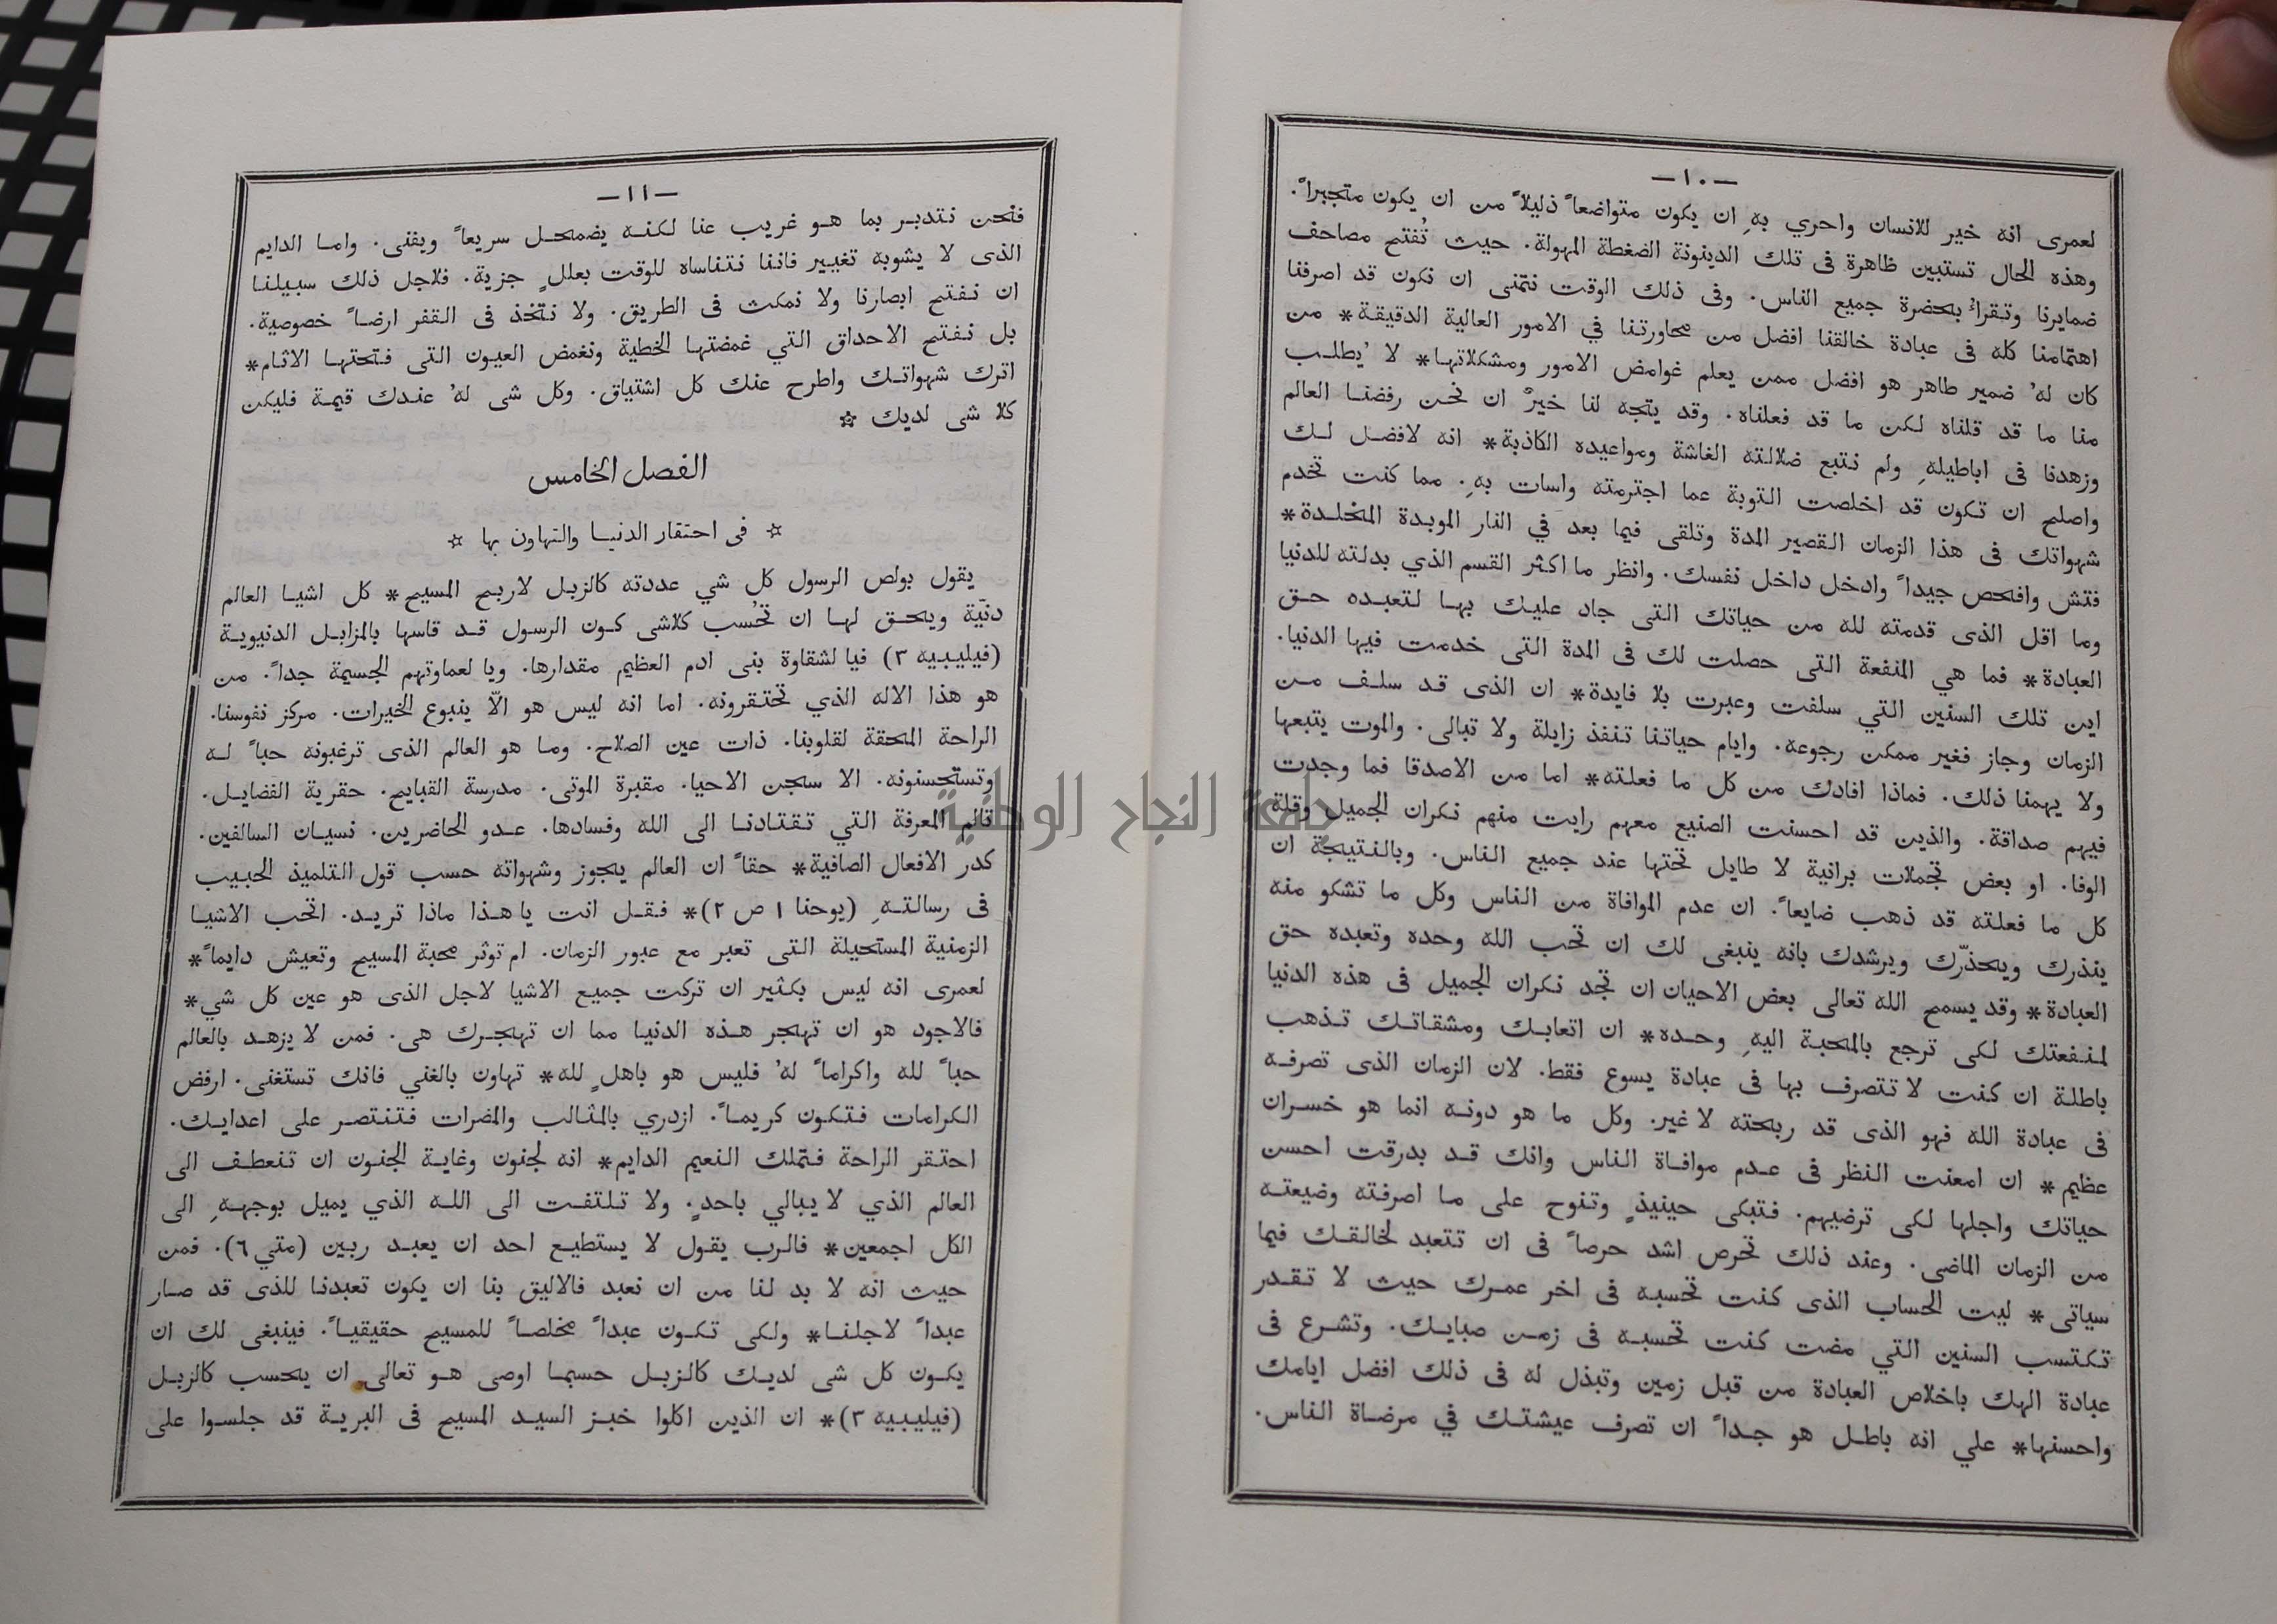 — ١٠ —
لعمرى انه خير للانسان واحري بهِ ان يكون متواضعاً ذليلاً من ان يكون متجبراً.
وهذه الحال تستبين ظاهرة فى تلك الدينونة الضغطة المهولة. حيث تُفتح مصاحف
ضمايرنا وتقراُ بحضرة جميع الناس. وفى ذلك الوقت نتمنى ان نكون قد اصرفنا
اهتمامنا كله فى عبادة خالقنا افضل من محاورتنا في الامور العالية الدقيقة* من
كان لهُ ضمير طاهر هو افضل ممن يعلم غوامض الامور ومشكلاتها* لا يُطلب
منا ما قد قلناه لكن ما قد فعلناه. وقد يتجه لنا خيرٌ ان نحن رفضنا العالم
وزهدنا فى اباطيلهِ ولم نتبع ضلالته الغاشة ومواعيده الكاذبة* انه لافضل لك
واصلح ان تكون قد اخلصت التوبة عما اجترمته واسات بهِ. مما كنت تخدم
شهواتك فى هذا الزمان القصير المدة وتلقى فيما بعد في النار الموبدة المخلدة*
فتش وافحص جيداً وادخل داخل نفسك. وانظر ما اكثر القسم الذي بدلته للدنيا
وما اقل الذى قدمته لله من حياتك التى جاد عليك بها لتعبده حق
العبادة* فما هي المنفعة التى حصلت لك فى المدة التى خدمت فيها الدنيا.
اين تلك السنين التي سلفت وعبرت بلا فايدة* ان الذى قد سلف من
الزمان وجاز فغير ممكن رجوعه. وايام حياتنا تنفذ زايلة ولا تبالى. والموت يتبعها
ولا يهمنا ذلك. فماذا افادك من كل ما فعلته* اما من الاصدقا فما وجدت
فيهم صداقة. والذين قد احسنت الصنيع معهم رايت منهم نكران الجميل وقلة
الوفا. او بعض تجملات برانية لا طايل تحتها عند جميع الناس. وبالنتيجة ان
كل ما فعلته قد ذهب ضايعاً. ان عدم الموافاة من الناس وكل ما تشكو منه
ينذرك ويحذّرك ويرشدك بانه ينبغى لك ان تحب الله وحده وتعبده حق
العبادة* وقد يسمح الله تعالى بعض الاحيان ان تجد نكران الجميل فى هذه الدنيا
لمنفعتك لكى ترجع بالمحبة اليهِ وحده* ان اتعابك ومشقاتك تذهب
باطلة ان كنت لا تتصرف بها فى عبادة يسوع فقط. لان الزمان الذى تصرفه
فى عبادة الله فهو الذى قد ربحته لا غير. وكل ما هو دونه انما هو خسران
عظيم* ان امعنت النظر فى عدم موافاة الناس وانك قد بدرقت احسن
حياتك واجلها لكى ترضيهم. فتبكى حينيذٍ وتنوح على ما اصرفته وضيعته
من الزمان الماضى. وعند ذلك تحرص اشد حرصاً فى ان تتعبد لخالقك فيما
سياتى* ليت الحساب الذى كنت تحسبه فى اخر عمرك حيث لا تقدر
تكتسب السنين التي مضت كنت تحسبه فى زمن صبايك. وتشرع فى
عبادة الهك باخلاص العبادة من قبل زمين وتبذل له فى ذلك افضل ايامك
واحسنها* علي انه باطل هو جداً ان تصرف عيشتك في مرضاة الناس.
— ١١ —
فنحن نتدبر بما هو غريب عنا لكنه يضمحل سريعاً ويفنى. واما الدايم
الذى لا يشوبه تغيير فاننا نتناساه للوقت بعللٍ جزية. فلاجل ذلك سبيلنا
ان نفتح ابصارنا ولا نمكث فى الطريق. ولا نتخذ فى القفر ارضاً خصوصية.
بل نفتح الاحداق التي غمضتها الخطية ونغمض العيون التى فتحتها الاثام*
اترك شهواتك واطرح عنك كل اشتياق. وكل شى لهُ عندك قيمة فليكن
كلا شى لديك ☆
الفصل الخامس
☆ فى احتقار الدنيا والتهاون بها ☆
يقول بولص الرسول كل شي عددته كالزبل لاربح المسيح* كل اشيا العالم
دنّية ويحق لها ان تُحسب كلاشى كون الرسول قد قاسها بالمزابل الدنيوية
(فيليبيه ٣) فيا لشقاوة بنى ادم العظيم مقدارها. ويا لعماوتهم الجسيمة جداً. من
هو هذا الاله الذي تحتقرونه. اما انه ليس هو الاّ ينبوع الخيرات. مركز نفوسنا.
الراحة المحقة لقلوبنا. ذات عين الصلاح. وما هو العالم الذى ترغبونه حباً له
وتستحسنونه. الا سجن الاحيا. مقبرة الموتى. مدرسة القبايح. حقرية الفضايل.
ثالم المعرفة التي تقتادنا الى الله وفسادها. عدو الحاضرين. نسيان السالفين.
كدر الافعال الصافية* حقاً ان العالم يجوز وشهواته حسب قول التلميذ الحبيب
فى رسالتهِ (يوحنا ١ ص ٢)* فقل انت يا هذا ماذا تريد. اتحب الاشيا
الزمنية المستحيلة التى تعبر مع عبور الزمان. ام توثر محبة المسيح وتعيش دايماً*
لعمرى انه ليس بكثير ان تركت جميع الاشيا لاجل الذى هو عين كل شي*
فالاجود هو ان تهجر هذه الدنيا مما ان تهجرك هى. فمن لا يزهد بالعالم
حباً لله واكراماً لهُ فليس هو باهلٍ لله* تهاون بالغني فانك تستغنى. ارفض
الكرامات فتكون كريماً. ازدري بالمثالب والمضرات فتنتصر على اعدايك.
احتقر الراحة فتملك النعيم الدايم* انه لجنون وغاية الجنون ان تنعطف الى
العالم الذي لا يبالي باحدٍ. ولا تلتفت الى الله الذي يميل بوجههِ الى
الكل اجمعين* فالرب يقول لا يستطيع احد ان يعبد ربين (متي ٦). فمن
حيث انه لا بد لنا من ان نعبد فالاليق بنا ان يكون تعبدنا للذى قد صار
عبداً لاجلنا* ولكى تكون عبداً مخلصاً للمسيح حقيقياً. فينبغى لك ان
يكون كل شى لديك كالزبل حسبما اوصى هو تعالى ان يحسب كالزبل
(فيليبيه ٣)* ان الذين اكلوا خبز السيد المسيح فى البرية قد جلسوا على
جامعة النجاح الوطنية